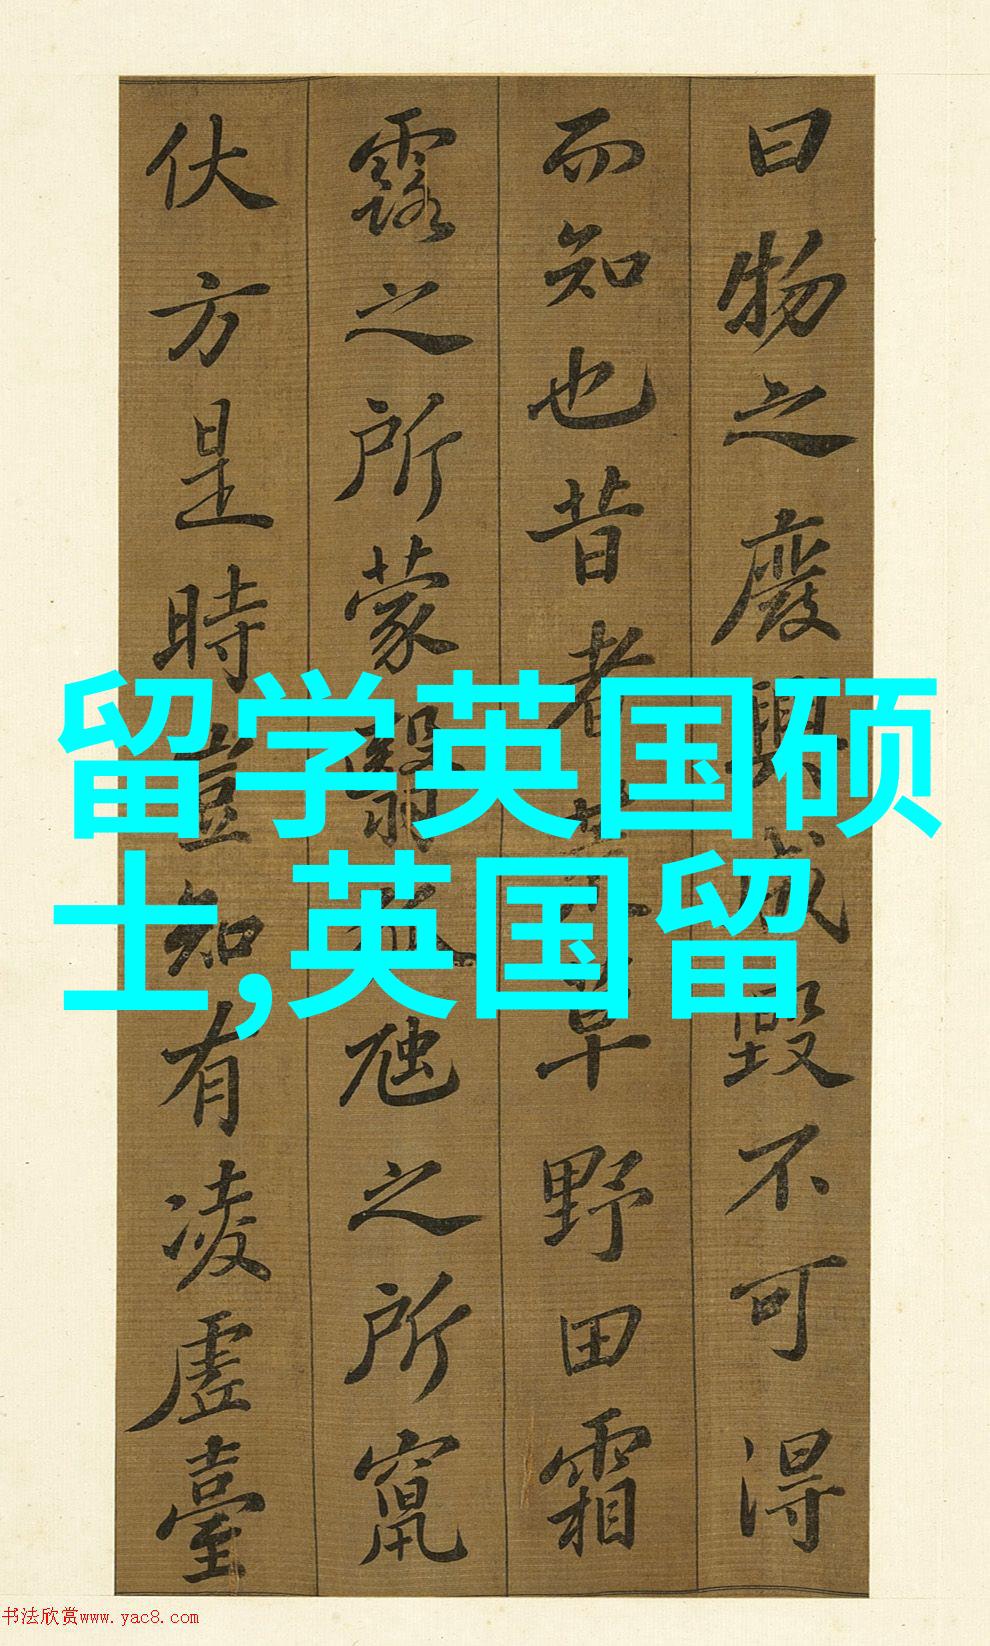 曰物之廢興成毀不可得
而知也昔者荒草野田霜
露之所蒙翳狐虺之所竄
伏方是時豈知有凌虛臺
留学英国硕
士,英国留
书法欣赏www.yac8.com